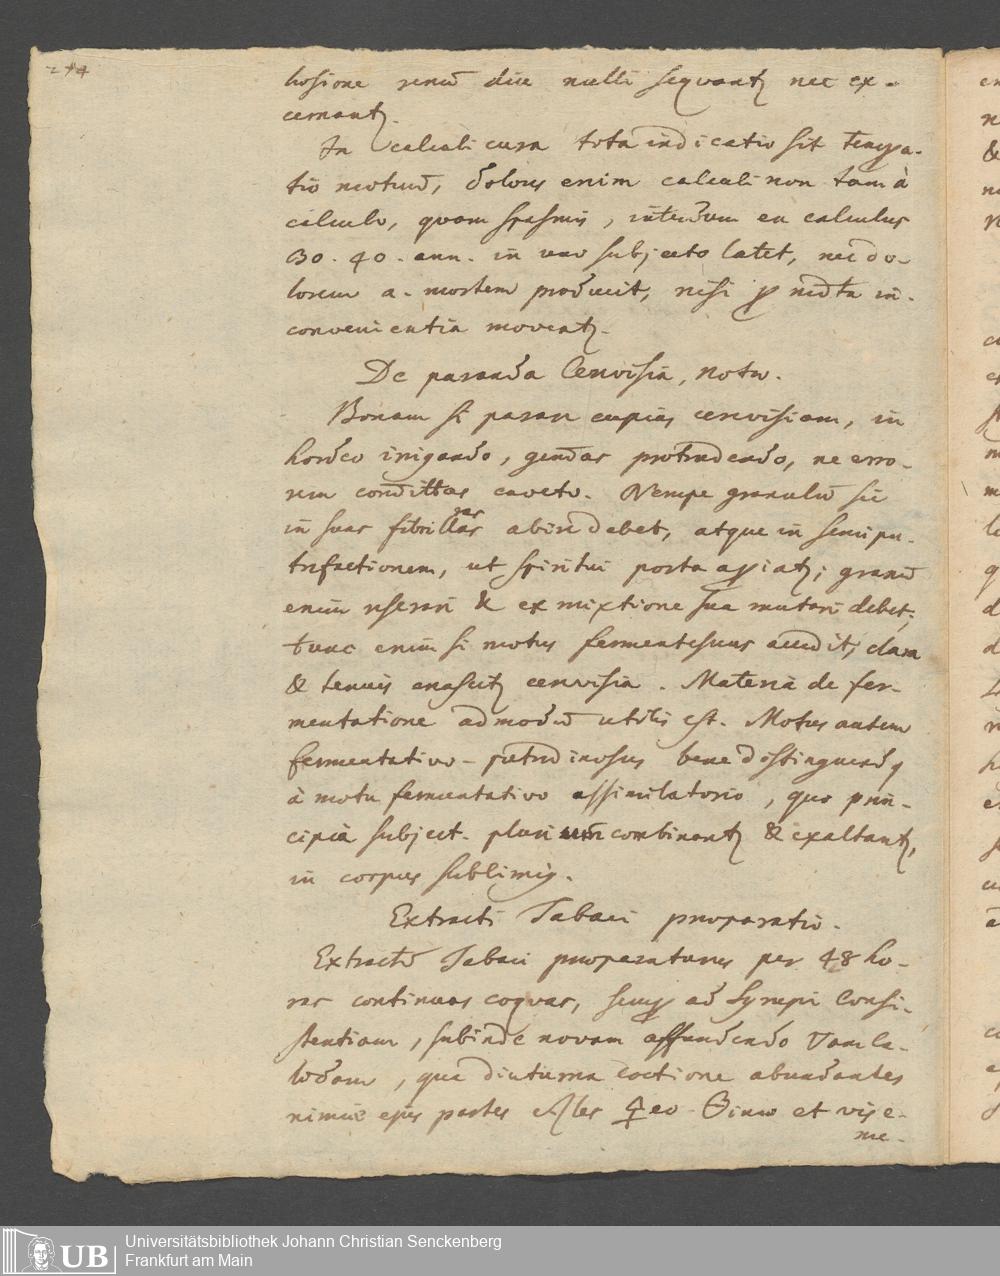 274
hosione renū diu nulli sequantr nec ex-
cernantr.
In calculi cura tota indicatio sit tempa-
tio motuū, dolores enim calculi non tam à
calculo, quam spasmis, interdum en calculus
30. 40. ann. in uno subjecto latet, nec do-
lorem a. mortem producit, nisi p multa in-
convenientia moveatr.
De paranda Cerevisia, nota.
Bonam si parare cupias cerevisiam, in
hordeo irrigando, protrudendo, ne erro-
rem committas caveto. Nempe granulū sic
in suas fibrillas abire debet, atque in semipu-
trefactionem, ut spiritui porta apiatr; granū
enim reserari & ex mixtione sua mutari debet;
tunc enim si motus fermentesens accedit, clara
& tenuis enascitr cerevisia. Materia de fer-
mentatione admodū utilis est. Motus autem
fermentativo-putredinosus bene distinguendq
à motu fermentativo assimilatorio, quo prin-
cipia subject. combinantr & exaltantr,
in corpus sublimig.
Extracti Tabaci præparatio.
Extractū Tabaci præparaturus per 48 ho-
ras continuas coquas, semp ad Syrupi Consi-
stentiam, subinde novam affundendo
, que diuturna coctione abundantes
nimis ejus partes et vis e-
me-
Universitätsbibliothek Johann Christian Senckenberg
Frankfurt am Main
UB